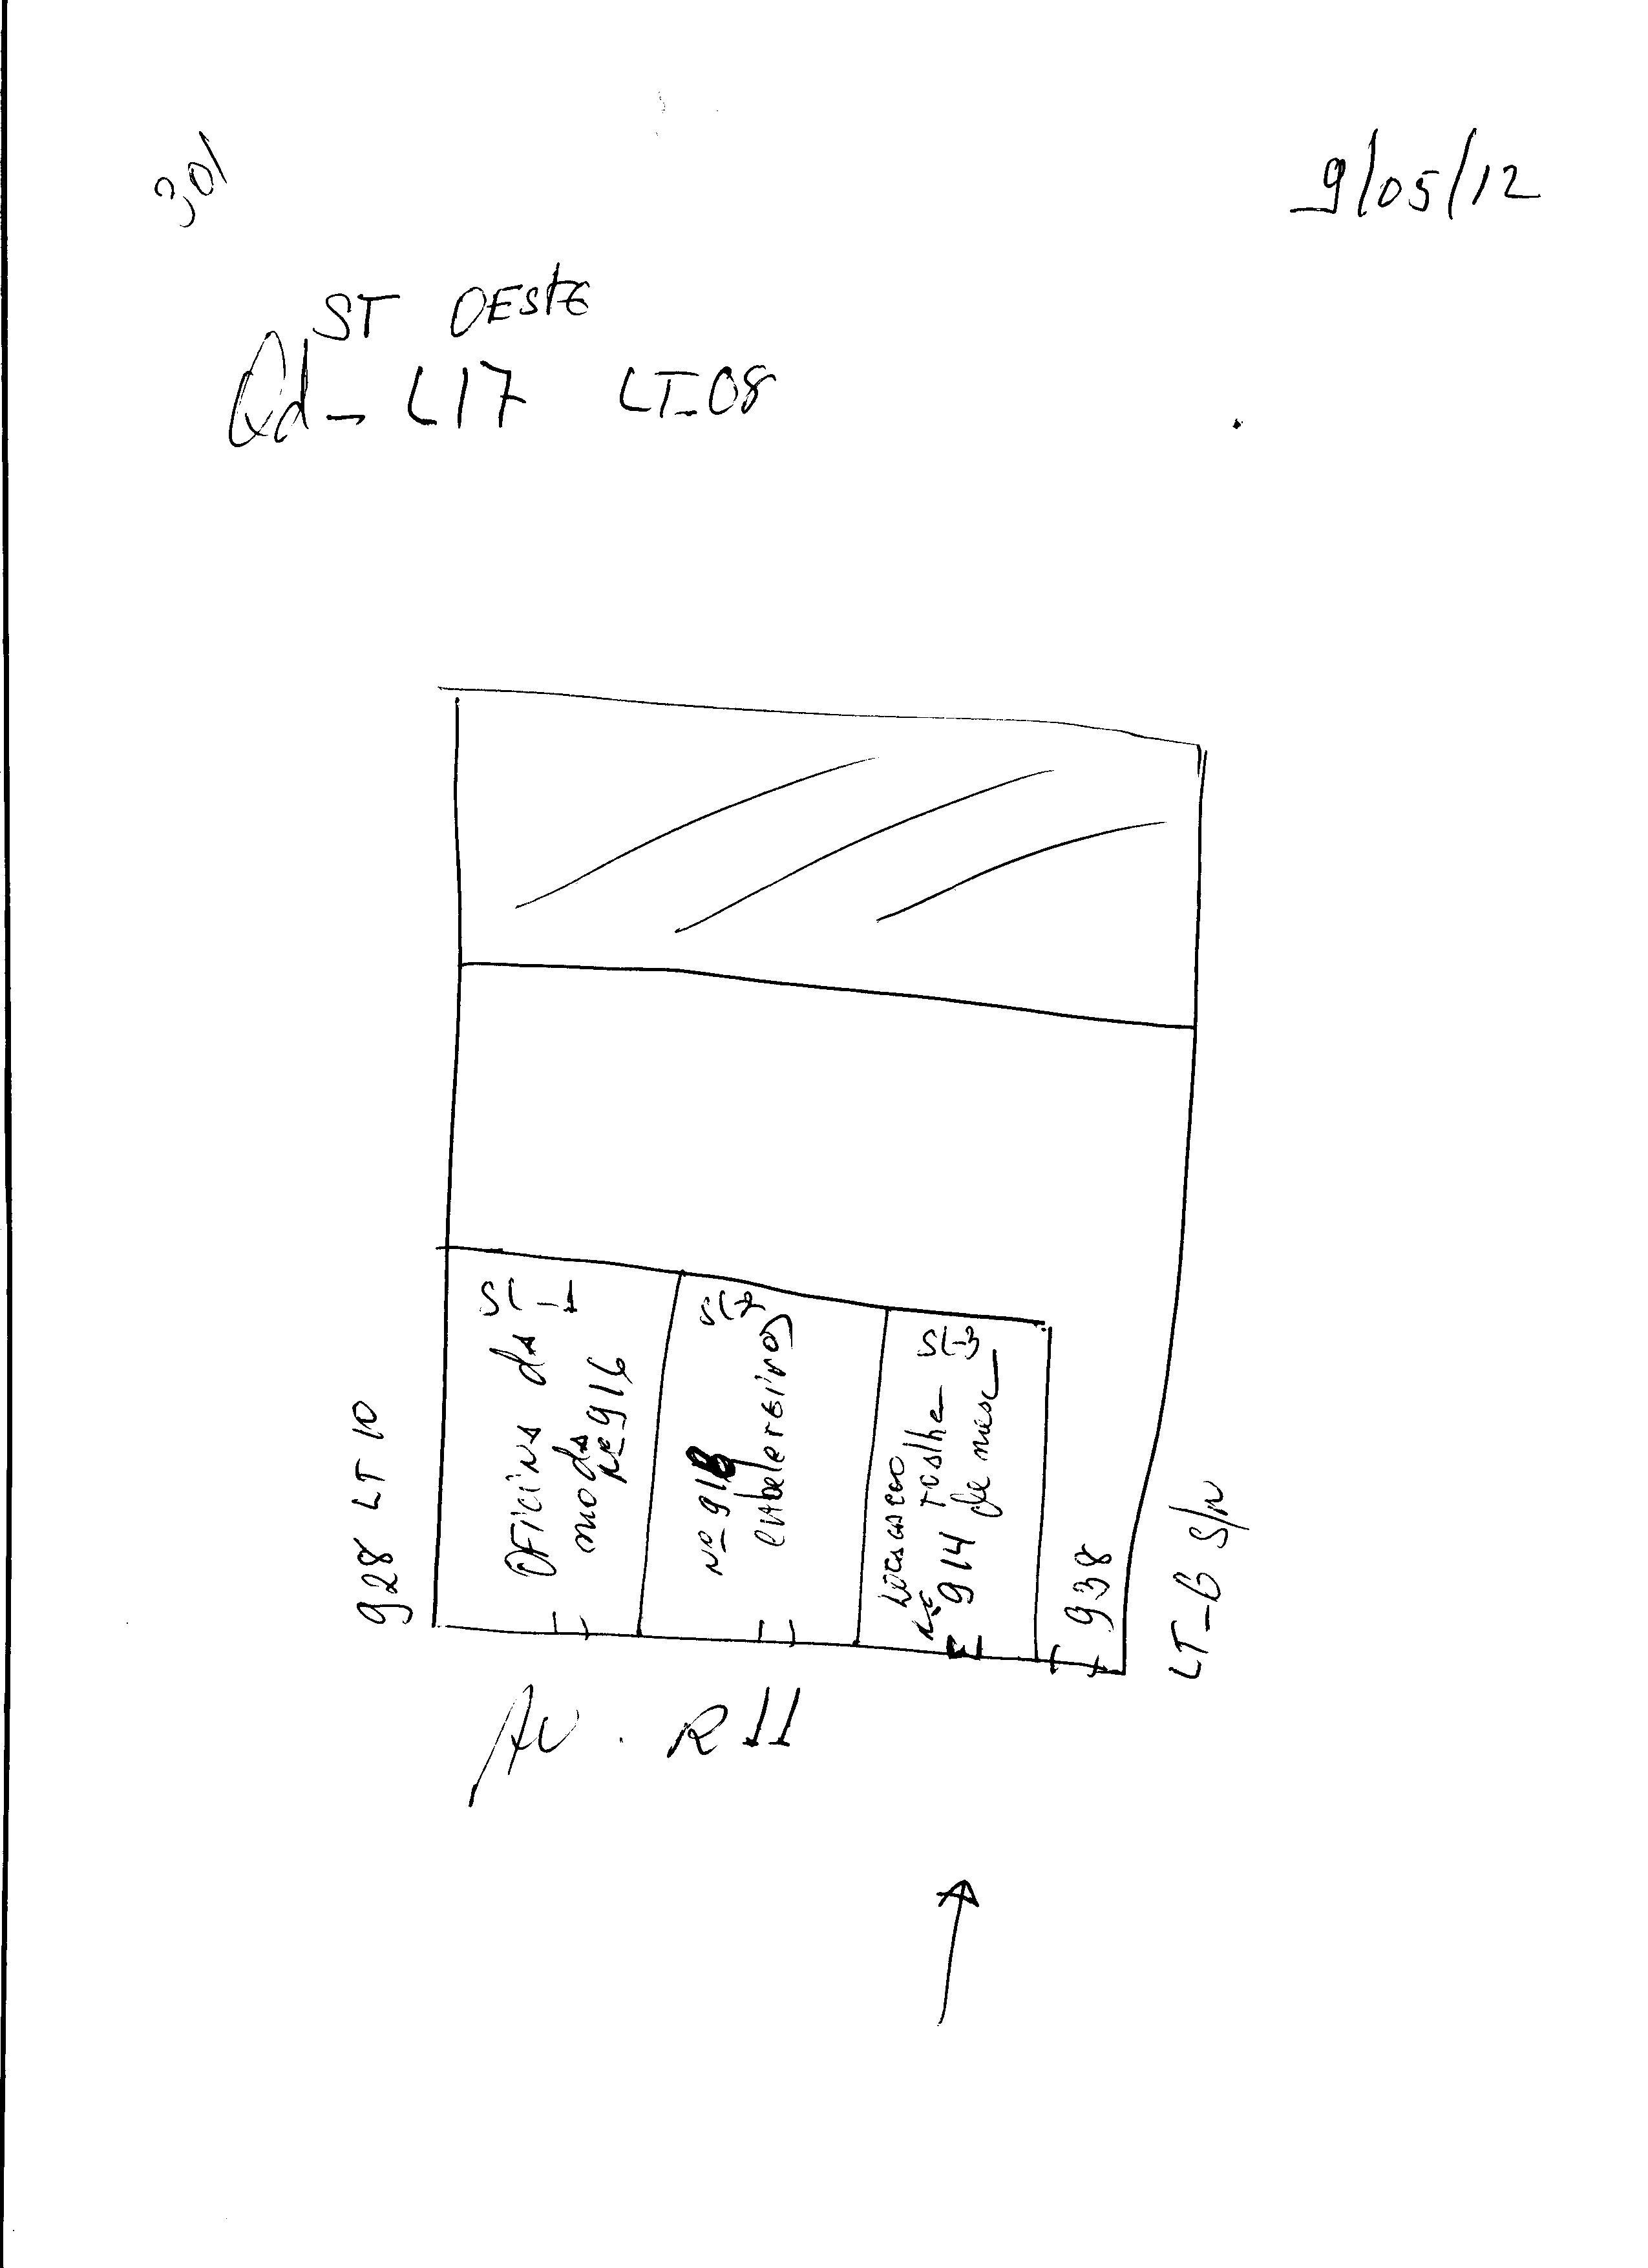 301
9/05/12
ST OESTE
Qd- L17 LT-08
SL-1
Oficina da
moda
Nº 916
SL2
Nº 918
cabelereiros
SL-3
Locacao
toalha
de mesa
Nº 914
938
928 LT 10
LT-6 S/N
AV. R11